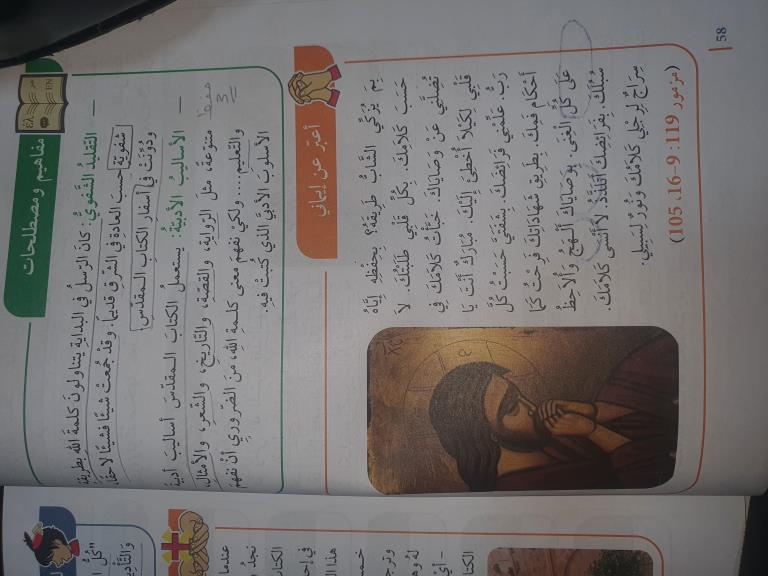 مفاهيم ومصطلحات
— التّقليدُ الشَّفَويُّ: كان الرّسل في البداية يتناولون كلمة الله بطريقة
شفويّة حسب العادة في الشرق قديمًا. وقدْ جُمعتْ شيئًا فشيئًا لاحقًا،
ودُوِّنَتْ في أسفار الكتاب المقدّس.
— الأساليبُ الأدبيّةُ: يستعملُ الكتابُ المقدّس أساليبَ أدبيّة
متنوّعة، مثل الرّواية، والقصّة، والتّاريخ، والشّعر، والأمثال،
والتّعليم.... ولكيْ نفهمَ معنى كلمة الله، منَ الضّروريّ أنْ نفهمَ
الأسلوبَ الأدبيَّ الذي كُتبتْ فيه.
أعبّر عن إيماني
بِمَ يُزَكّي الشَّابُّ طَرِيقَهُ؟ بِحِفْظِهِ إِيَّاهُ
حَسَبَ كَلَامِكَ. بِكُلِّ قَلْبِي طَلَبْتُكَ. لَا
تُضِلَّنِي عَنْ وَصَايَاكَ. خَبَأْتُ كَلَامَكَ فِي
قَلْبِي لِكَيْلَا أُخْطِئَ إِلَيْكَ. مُبَارَكٌ أَنْتَ يَا
رَبُّ. عَلِّمْنِي فَرَائِضَكَ. بِشَفَتَيَّ حَسَبْتُ كُلَّ
أَحْكَامِ فَمِكَ. بِطَرِيقِ شَهَادَاتِكَ فَرِحْتُ كَمَا
عَلَى كُلِّ الْغِنَى. بِوَصَايَاكَ أَلْهَجُ وَأُلَاحِظُ
سُبُلَكَ. بِفَرَائِضِكَ أَتَلَذَّذُ. لَا أَنْسَى كَلَامَكَ.
سِرَاجٌ لِرِجْلِي كَلَامُكَ وَنُورٌ لِسَبِيلِي.
(مزمور 119: 9-16، 105)
58